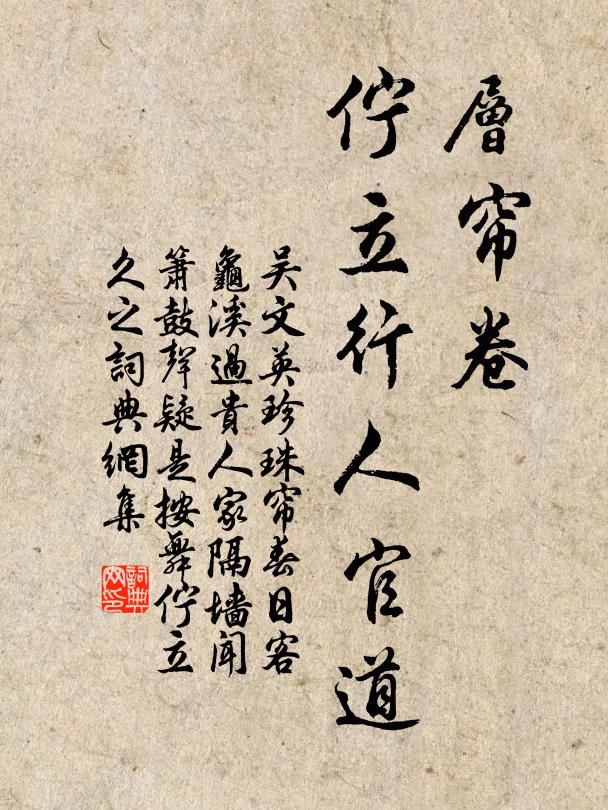 層帘卷
佇立行人官道
吳文英珍珠帘春日客
龜溪過貴人家隔墻聞
簫鼓聲疑是按舞佇立
久之詞典網集
詞典
网印